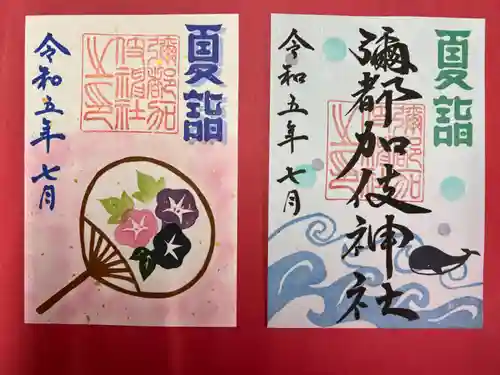 夏詣
彌都加
伎神社
之印
令和五年 七月
夏詣
彌都加伎神社
彌都加
伎神社
之印
令和五年 七月